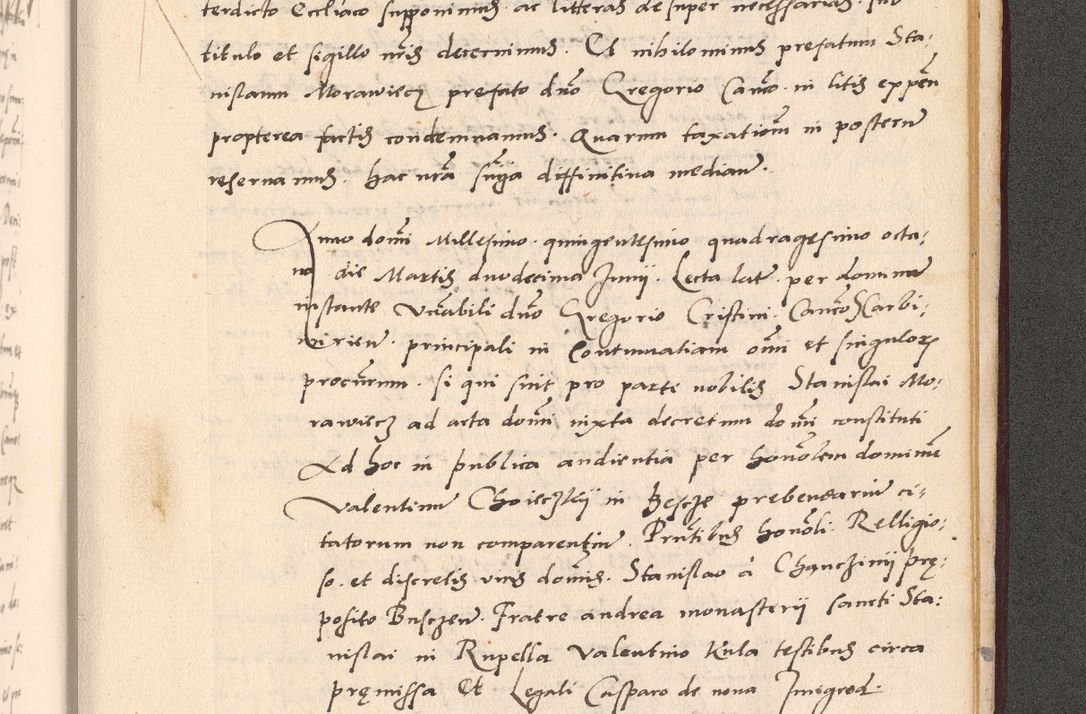 terdicto Eccliaco supponimus ac litteras desuper necessarias sub
titulo et sigillo nris decernimus. Et nihilominus prefatum Sta-
nislaum Morawiecz prefato dno Gregorio Canco in litis expen
propterea factis condemnamus. Quarum taxationem in posterum
reservamus. hac nra snia diffinitiva mediante.
Anno domi Millesimo quingentesimo quadragesimo octa-
vo die Martis duodecima Junii. Lecta late per dominum
instante Venabili dno Gregorio Cristini Canco Scarbi-
mirien principali in Contumatiam omi et singulorum
procurum. si qui sint pro parte nobilis Stanislai Mo-
rawiecz ad acta domi iuxta decretum domi constituti
Ad hoc in publica audientia per honolem dominum
Valentinum Choieczkii in prebendarium ci-
tatorum non comparentium. Pntibus honoli Relligio-
so et discretis viris domis. Stanislao a Chanczinii pre-
posito Busczen. Fratre andrea monasterii sancti Sta-
nislai in Rupella Valentino Kula testibus circa
premissa Et Legali Casparo de nova Imigrod.